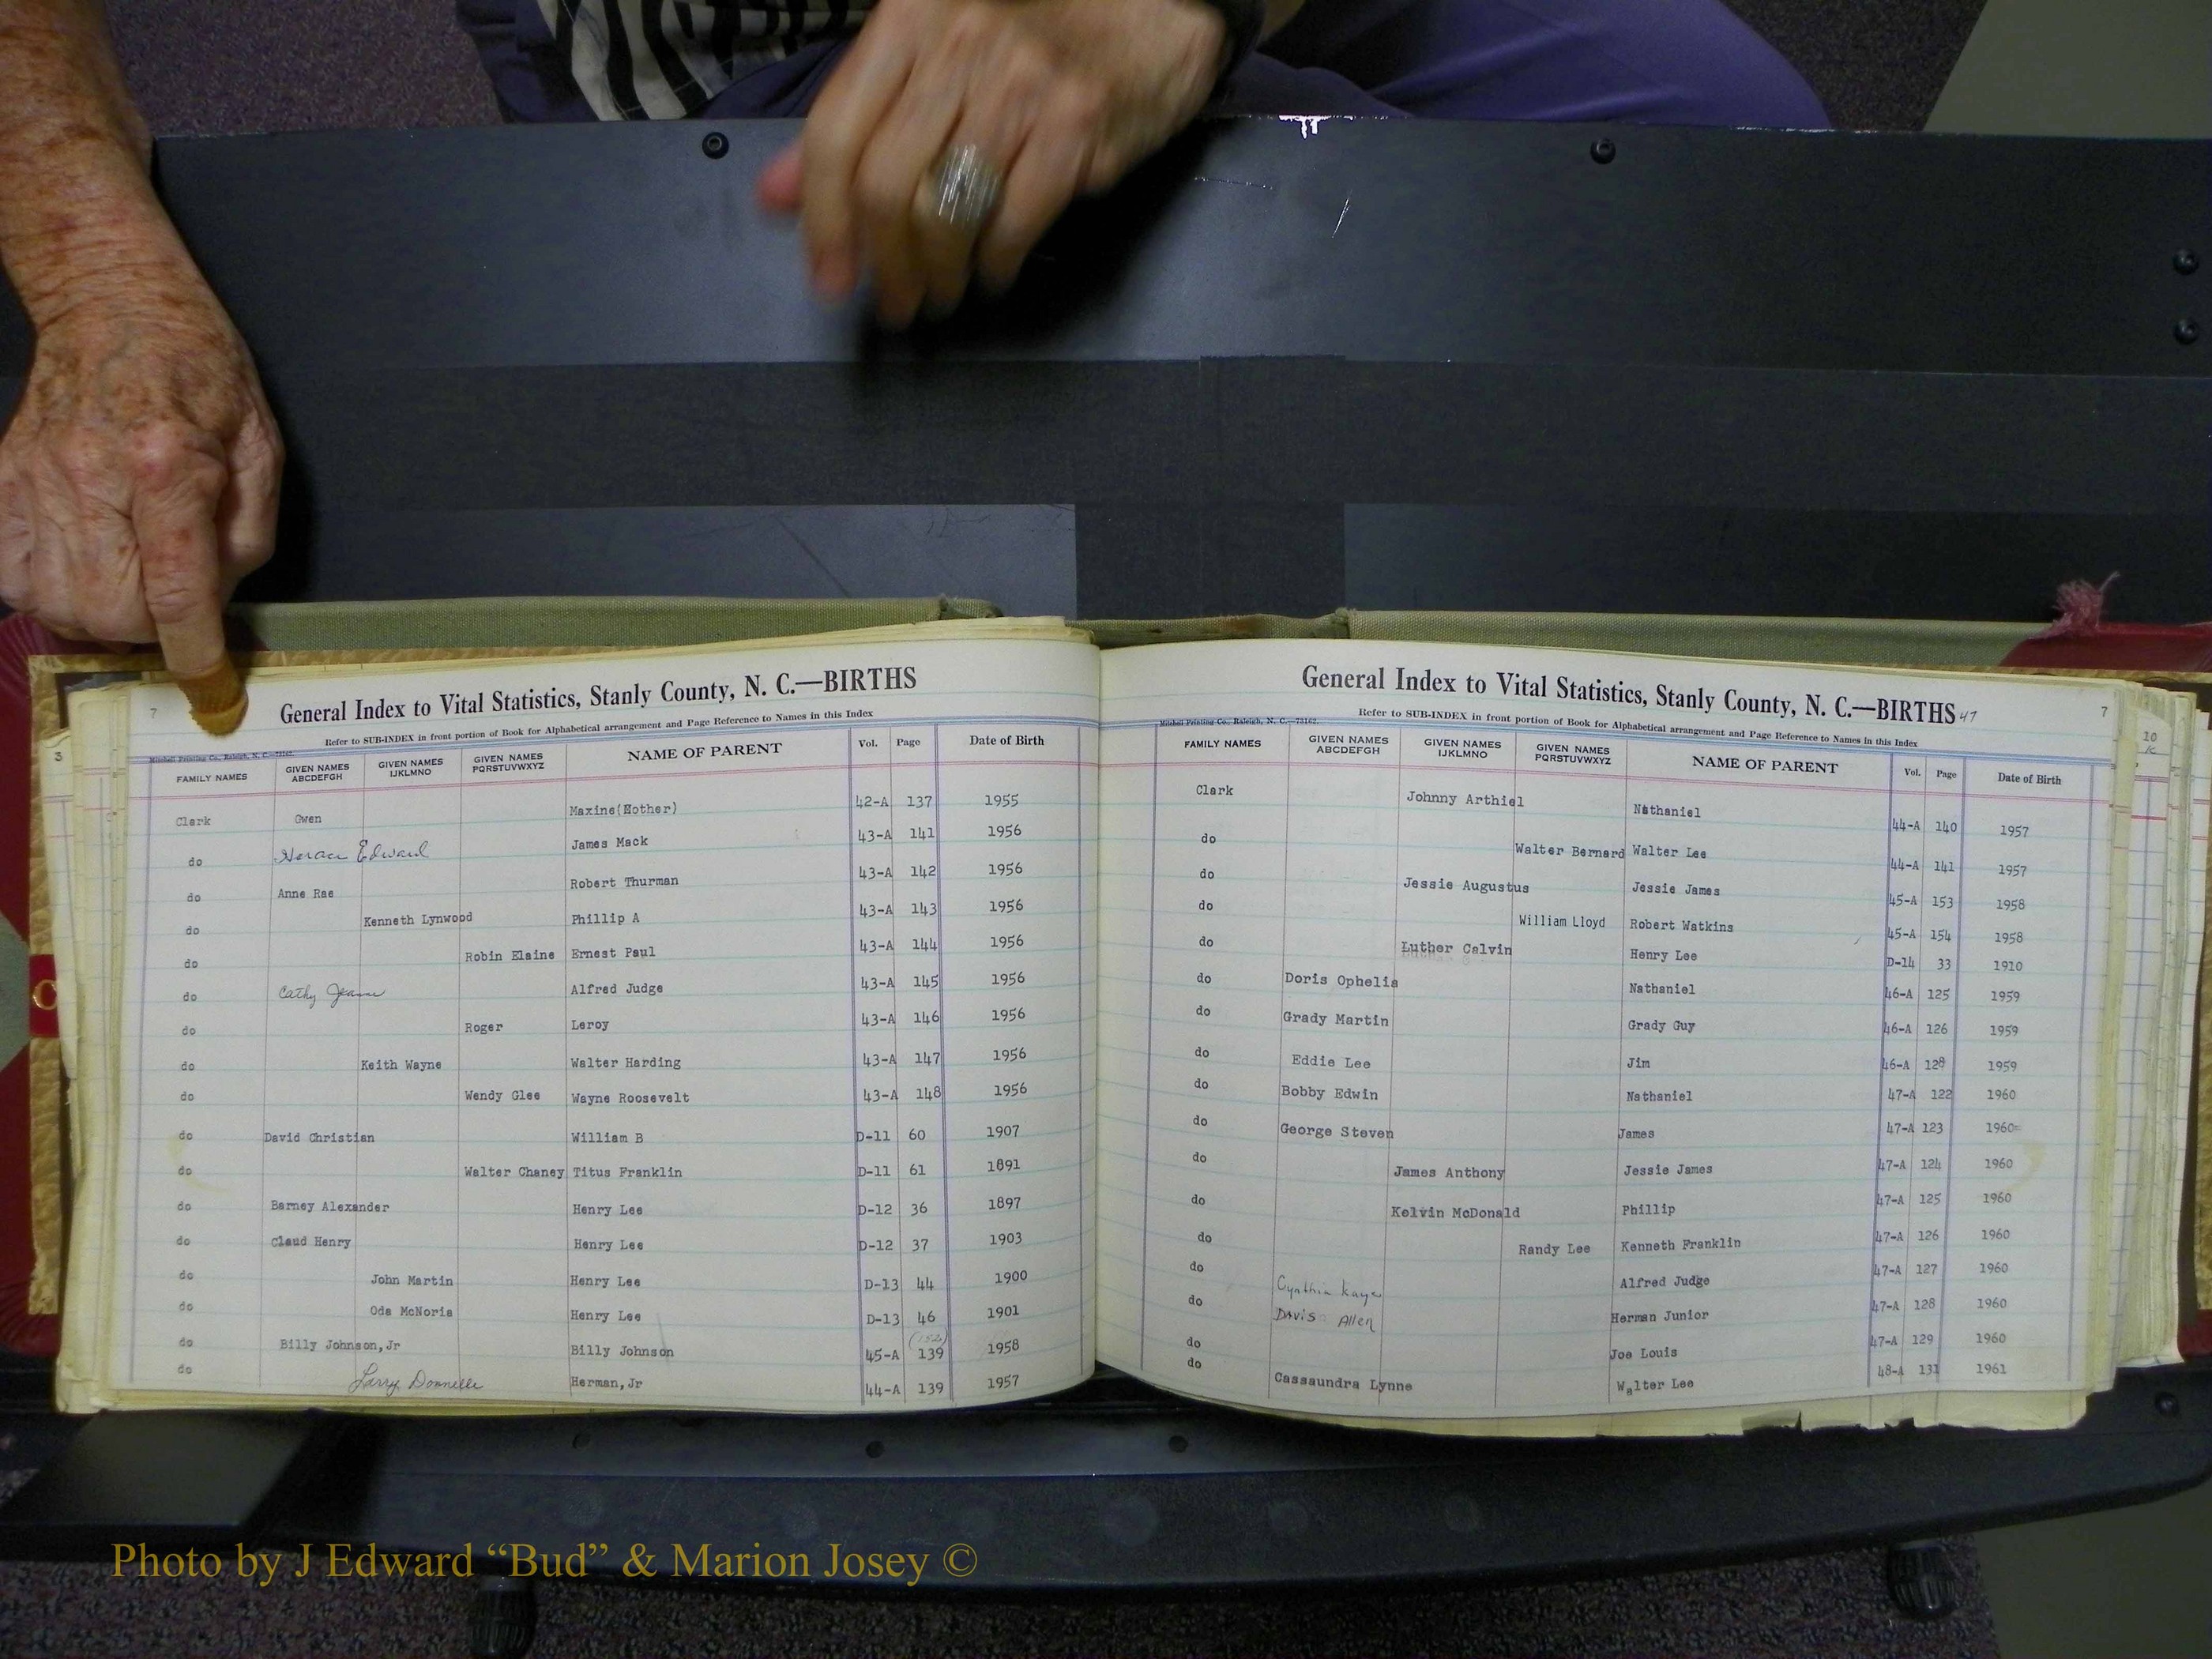 7
General Index to Vital Statistics, Stanly County, N. C.—BIRTHS
Refer to SUB-INDEX in front portion of Book for Alphabetical arrangement and Page Reference to Names in this Index
FAMILY NAMES GIVEN NAMES ABCDEFGH GIVEN NAMES IJKLMNO GIVEN NAMES PQRSTUVWXYZ NAME OF PARENT Vol. Page Date of Birth
Clark Gwen Maxine(Mother) 42-A 137 1955
do Horace Edward James Mack 43-A 141 1956
do Anne Rae Robert Thurman 43-A 142 1956
do Kenneth Lynwood Phillip A 43-A 143 1956
do Robin Elaine Ernest Paul 43-A 144 1956
do Cathy Jeanne Alfred Judge 43-A 145 1956
do Roger Leroy 43-A 146 1956
do Keith Wayne Walter Harding 43-A 147 1956
do Wendy Glee Wayne Roosevelt 43-A 148 1956
do David Christian William B D-11 60 1907
do Walter Chaney Titus Franklin D-11 61 1891
do Barney Alexander Henry Lee D-12 36 1897
do Claud Henry Henry Lee D-12 37 1903
do John Martin Henry Lee D-13 44 1900
do Oda McNoria Henry Lee D-13 46 1901
do Billy Johnson,Jr Billy Johnson 45-A 139 1958
do Larry Donnelle Herman,Jr 44-A 139 1957
General Index to Vital Statistics, Stanly County, N. C.—BIRTHS 47
7
Mitchell Printing Co., Raleigh, N. C.—73162.
Refer to SUB-INDEX in front portion of Book for Alphabetical arrangement and Page Reference to Names in this Index
FAMILY NAMES GIVEN NAMES ABCDEFGH GIVEN NAMES IJKLMNO GIVEN NAMES PQRSTUVWXYZ NAME OF PARENT Vol. Page Date of Birth
Clark Johnny Arthiel Nathaniel 44-A 140 1957
do Walter Bernard Walter Lee 44-A 141 1957
do Jessie Augustus Jessie James 45-A 153 1958
do William Lloyd Robert Watkins 45-A 154 1958
do Luther Calvin Henry Lee D-14 33 1910
do Doris Ophelia Nathaniel 46-A 125 1959
do Grady Martin Grady Guy 46-A 126 1959
do Eddie Lee Jim 46-A 128 1959
do Bobby Edwin Nathaniel 47-A 122 1960
do George Steven James 47-A 123 1960
do James Anthony Jessie James 47-A 124 1960
do Kelvin McDonald Phillip 47-A 125 1960
do Randy Lee Kenneth Franklin 47-A 126 1960
do Cynthia Kaye Alfred Judge 47-A 127 1960
do Davis Allen Herman Junior 47-A 128 1960
do Joe Louis 47-A 129 1960
do Cassaundra Lynne Walter Lee 48-A 131 1961
3
10
C
Photo by J Edward “Bud” & Marion Josey ©